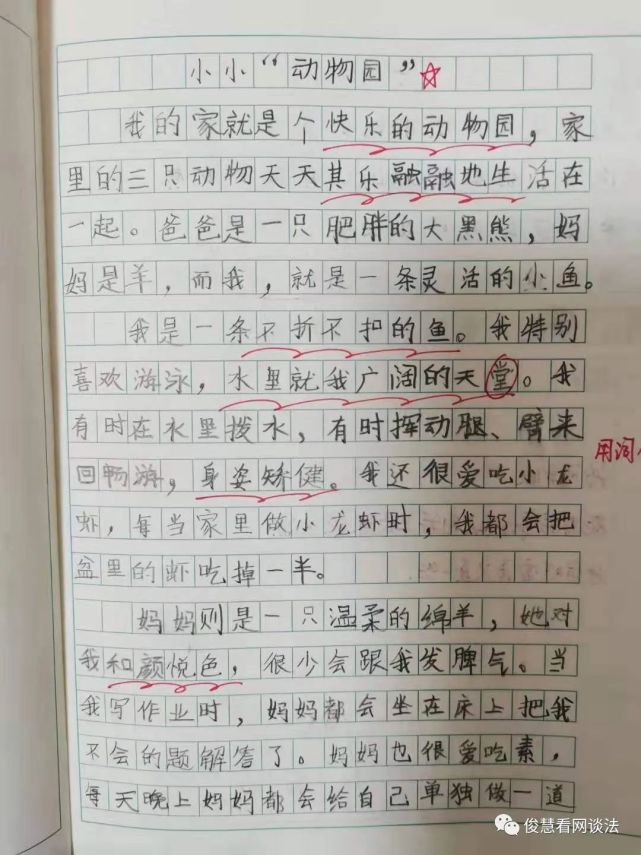 小小“动物园”
我的家就是个快乐的动物园，家
里的三只动物天天其乐融融地生活在
一起。爸爸是一只肥胖的大黑熊，妈
妈是羊，而我，就是一条灵活的小鱼。
我是一条不折不扣的鱼。我特别
喜欢游泳，水里就我广阔的天堂。我
有时在水里拨水，有时挥动腿、臂来
回畅游，身姿矫健。我还很爱吃小龙
虾，每当家里做小龙虾时，我都会把
盆里的虾吃掉一半。
妈妈则是一只温柔的绵羊，她对
我和颜悦色，很少会跟我发脾气。当
我写作业时，妈妈都会坐在床上把我
不会的题解答了。妈妈也很爱吃素，
每天晚上妈妈都会给自己单独做一道
用词
俊慧看网谈法